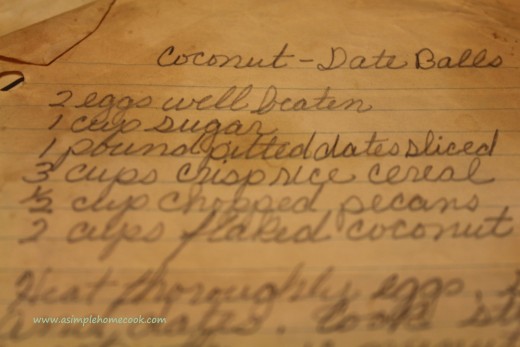 Coconut - Date Balls
2 eggs well beaten
1 cup sugar
1 pound pitted dates sliced
3 cups crisp rice cereal
½ cup chopped pecans
2 cups flaked coconut
Heat thoroughly eggs,
dates. Cook
www.asimplehomecook.com